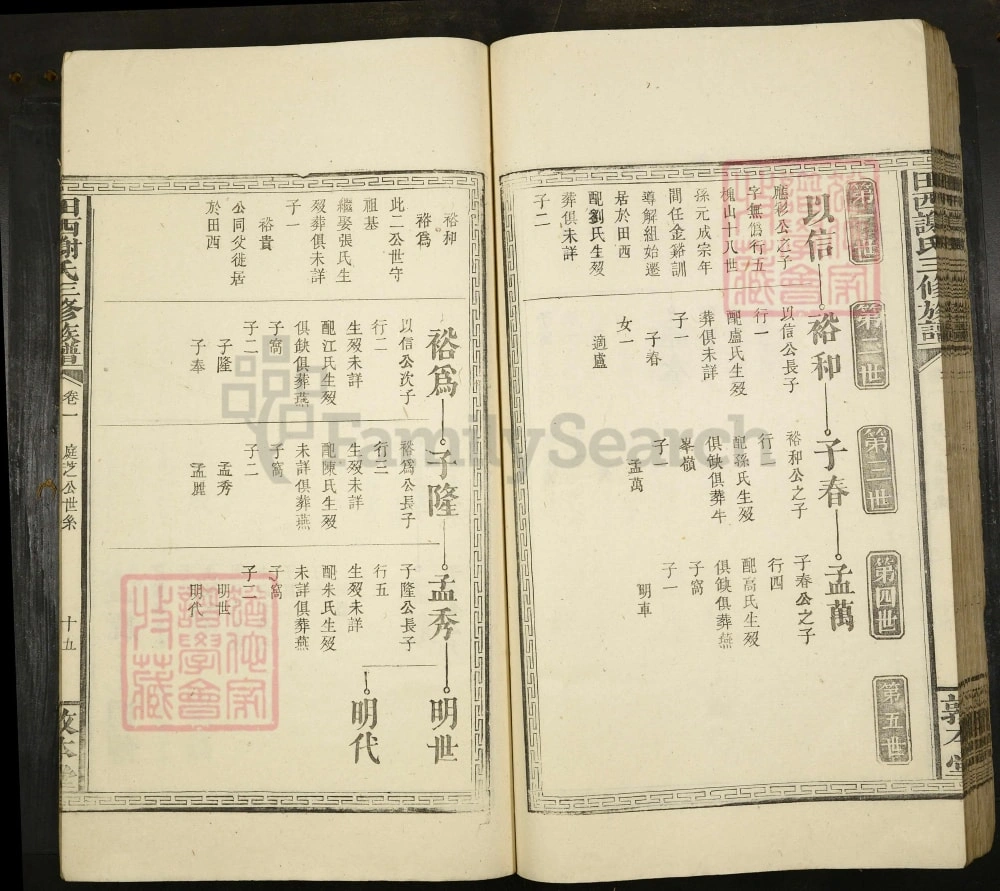 田西謝氏三修族譜
敦本堂
第一世
第二世
第三世
第四世
第五世
以信
應衫公之子
字無僞行五
槐山十八世
孫元成宗年
間任金谿訓
導解組始遷
居於田西
配劉氏生歿
葬俱未詳
子二
裕和
以信公長子
行一
配盧氏生歿
葬俱未詳
子一
子春
女一
適盧
子春
裕和公之子
行一
配孫氏生歿
俱缺俱葬牛
峯嶺
子一
孟萬
孟萬
子春公之子
行四
配高氏生歿
俱缺俱葬燕
子窩
子一
明車
裕和
裕爲
此二公世守
祖基
繼娶張氏生
歿葬俱未詳
子一
裕貴
公同父徙居
於田西
裕爲
以信公次子
行二
生歿未詳
配江氏生歿
俱缺俱葬燕
子窩
子二
子隆
子奉
子隆
裕爲公長子
行三
生歿未詳
配陳氏生歿
未詳俱葬燕
子窩
子二
孟秀
孟麗
孟秀
子隆公長子
行五
生歿未詳
配朱氏生歿
未詳俱葬燕
子窩
子二
明世
明代
明世
明代
田西謝氏三修族譜
卷一
庭芝公世系
十五
敦本堂
FamilySearch